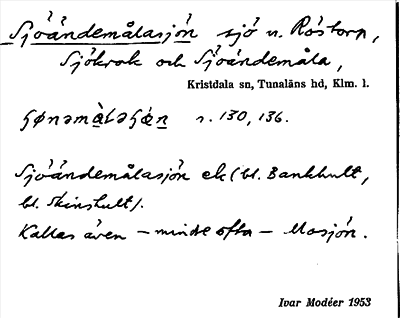 Sjöándemålasjón sjö n. Róstorp,
Sjökrok och Sjöándemåla,
Kristdala sn, Tunaläns hd, Klm. l.
s. 130, 136.
Sjöándemålasjón ek (bl. Bankhult,
bl. Skinshult).
Kallas även – mindre ofta – Mosjón.
Ivar Modéer 1953